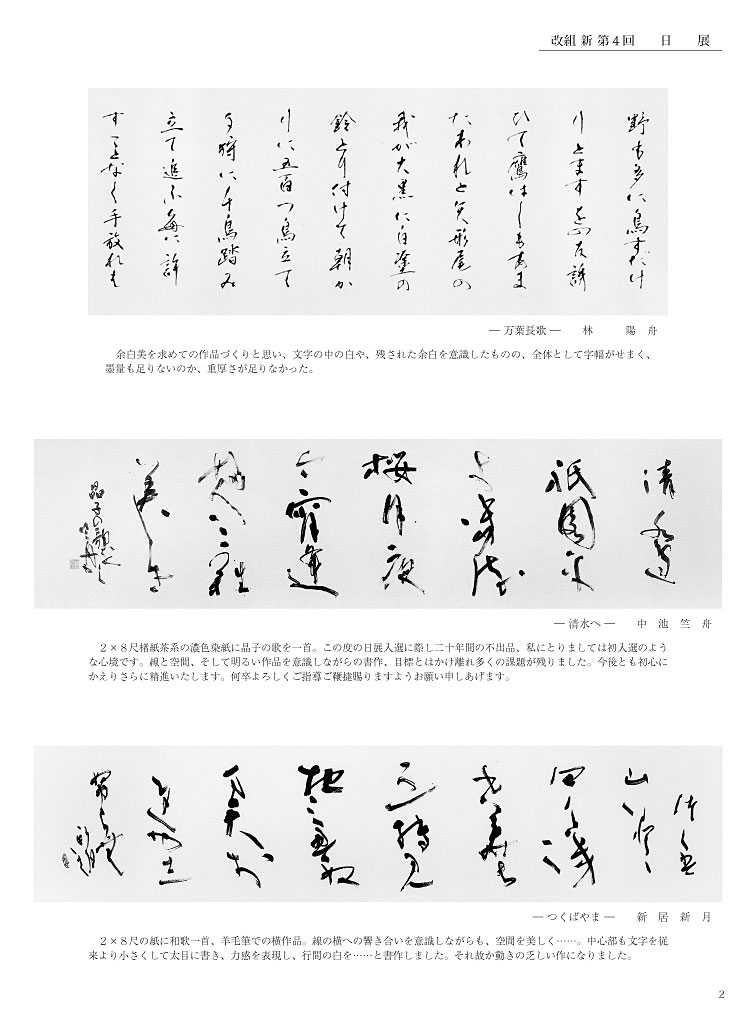 改組 新 第4回　日　展
野も多に鳥すだけ
りとますを乃友誘
ひて鷹はしもあま
たあれと矢形尾の
我が大黒に白塗の
鈴とり付けて朝か
りに五百つ鳥立て
夕狩に千鳥踏み
立て追ふ毎に許
すことなく手放れも
― 万葉長歌 ―　林　陽　舟
余白美を求めての作品づくりと思い、文字の中の白や、残された余白を意識したものの、全体として字幅がせまく、
墨量も足りないのか、重厚さが足りなかった。
清水
祇園乎
桜月夜
宵逢
美しき
晶子の歌
― 清水へ ―　中　池　竺　舟
２×８尺楮紙茶系の濃色染紙に晶子の歌を一首。この度の日展入選に際し二十年間の不出品、私にとりましては初入選のよう
な心境です。線と空間、そして明るい作品を意識しながらの書作、目標とはかけ離れ多くの課題が残りました。今後とも初心に
かえりさらに精進いたします。何卒よろしくご指導ご鞭撻賜りますようお願い申しあげます。
― つくばやま ―　新　居　新　月
２×８尺の紙に和歌一首、羊毛筆での横作品。線の横への響き合いを意識しながらも、空間を美しく……。中心部も文字を従
来より小さくして太目に書き、力感を表現し、行間の白を……と書作しました。それ故か動きの乏しい作になりました。
2